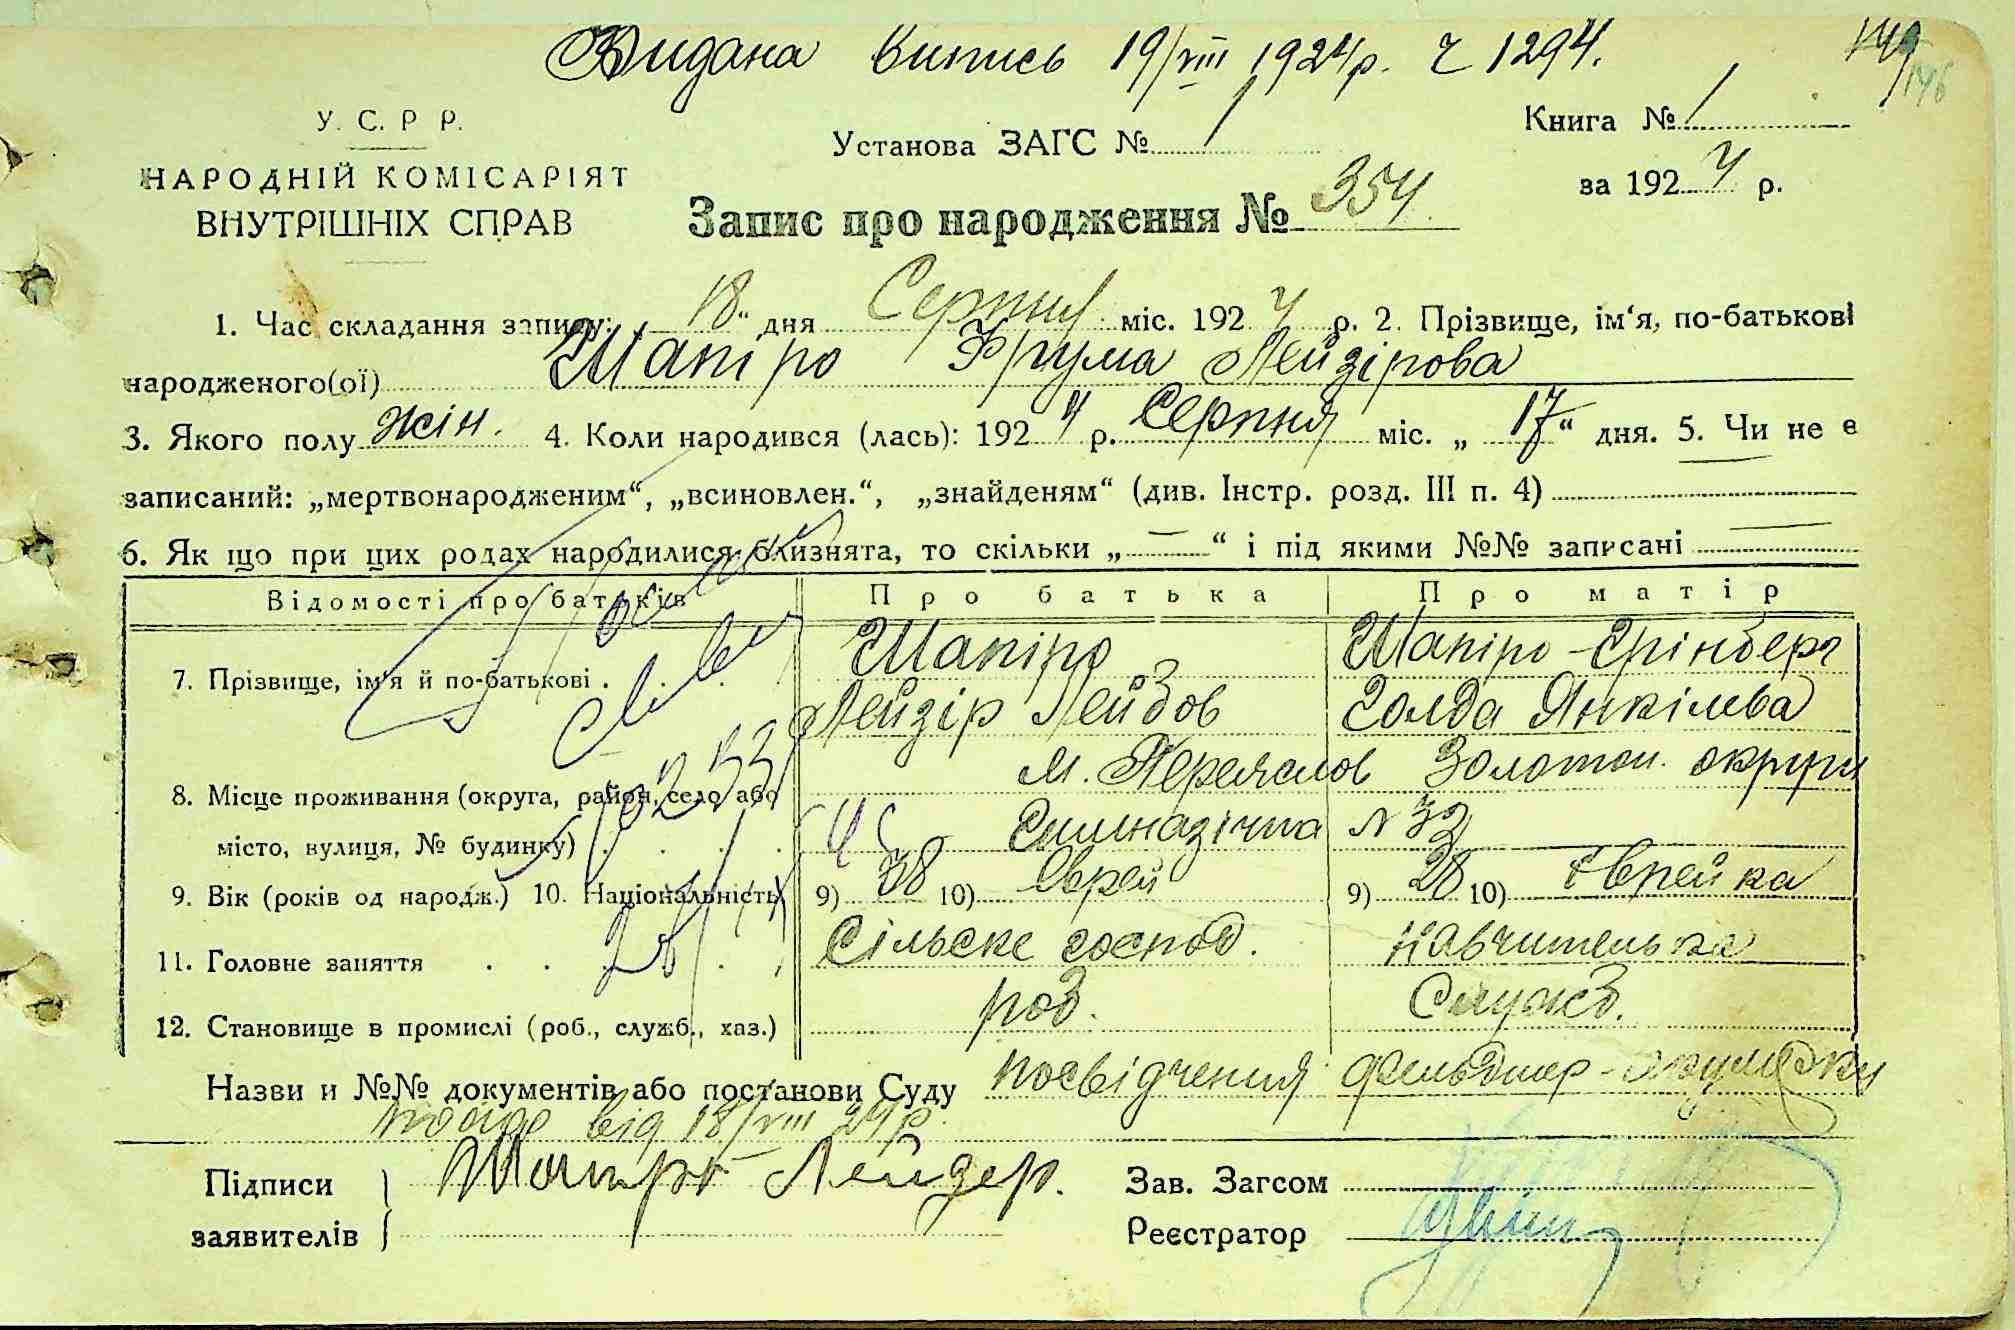 Видана випись 19/VIII 1924р. Ч 1294.
149
146
У. С. Р Р.
НАРОДНІЙ КОМІСАРІЯТ
ВНУТРІШНІХ СПРАВ
Установа ЗАГС № 1
Книга № 1
за 1924 р.
Запис про народження № 354
1. Час складання запису: 18 " дня Серпня міс. 1924 р. 2. Прізвище, ім'я, по-батькові
народженого(ої) Шапіро Фрума Лейзірова
3. Якого полу жін. 4. Коли народився (лась): 1924 р. Серпня міс. „ 17 “ дня. 5. Чи не є
записаний: „мертвонародженим“, „всиновлен.“, „знайденям“ (див. Інстр. розд. III п. 4)
6. Як що при цих родах народилися близнята, то скільки „ — “ і під якими №№ записані —
Відомості про батьків Про батька Про матір
7. Прізвище, ім'я й по-батькові . Шапіро Шапіро-Грінберг
Лейзір Лейбов Голда Янкілева
8. Місце проживання (округа, район, село або м. Переяслов Золотон. округи
місто, вулиця, № будинку) Гимназічна № 32
9. Вік (років од народж.) 10. Національність 9) 38 10) Єврей 9) 28 10) Єврейка
11. Головне заняття Сільске господ. Навчителька
12. Становище в промислі (роб., служб., хаз.) роб. Служб.
Назви и №№ документів або постанови Суду посвідчення фельдшер-акушерки
від 18/VIII 24р.
Підписи Шапиро Лейзер. Зав. Загсом
заявителів Реєстратор